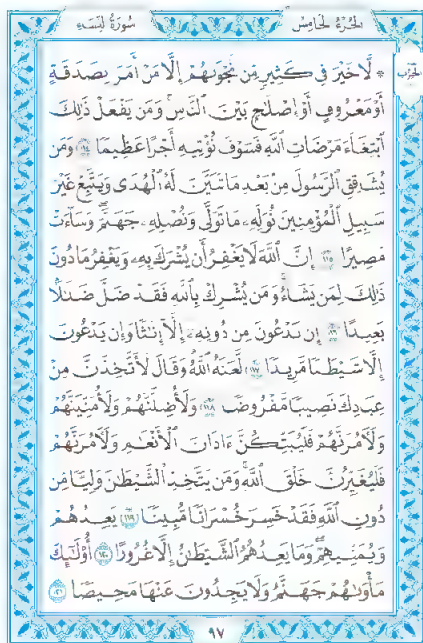 الجُزْءُ الخَامِسُ
سُورَةُ النِّسَاءِ
الحزب
۞ لَّا خَيْرَ فِي كَثِيرٍ مِّن نَّجْوَىٰهُمْ إِلَّا مَنْ أَمَرَ بِصَدَقَةٍ
أَوْ مَعْرُوفٍ أَوْ إِصْلَٰحٍۭ بَيْنَ ٱلنَّاسِۚ وَمَن يَفْعَلْ ذَٰلِكَ
ٱبْتِغَآءَ مَرْضَاتِ ٱللَّهِ فَسَوْفَ نُؤْتِيهِ أَجْرًا عَظِيمًا ١١٤ وَمَن
يُشَاقِقِ ٱلرَّسُولَ مِنۢ بَعْدِ مَا تَبَيَّنَ لَهُ ٱلْهُدَىٰ وَيَتَّبِعْ غَيْرَ
سَبِيلِ ٱلْمُؤْمِنِينَ نُوَلِّهِۦ مَا تَوَلَّىٰ وَنُصْلِهِۦ جَهَنَّمَۖ وَسَآءَتْ
مَصِيرًا ١١٥ إِنَّ ٱللَّهَ لَا يَغْفِرُ أَن يُشْرَكَ بِهِۦ وَيَغْفِرُ مَا دُونَ
ذَٰلِكَ لِمَن يَشَآءُۚ وَمَن يُشْرِكْ بِٱللَّهِ فَقَدْ ضَلَّ ضَلَٰلًۢا
بَعِيدًا ١١٦ إِن يَدْعُونَ مِن دُونِهِۦٓ إِلَّآ إِنَٰثًا وَإِن يَدْعُونَ
إِلَّا شَيْطَٰنًا مَّرِيدًا ١١٧ لَّعَنَهُ ٱللَّهُۘ وَقَالَ لَأَتَّخِذَنَّ مِنْ
عِبَادِكَ نَصِيبًا مَّفْرُوضًا ١١٨ وَلَأُضِلَّنَّهُمْ وَلَأُمَنِّيَنَّهُمْ
وَلَءَامُرَنَّهُمْ فَلَيُبَتِّكُنَّ ءَاذَانَ ٱلْأَنْعَٰمِ وَلَءَامُرَنَّهُمْ
فَلَيُغَيِّرُنَّ خَلْقَ ٱللَّهِۚ وَمَن يَتَّخِذِ ٱلشَّيْطَٰنَ وَلِيًّا مِّن
دُونِ ٱللَّهِ فَقَدْ خَسِرَ خُسْرَانًا مُّبِينًا ١١٩ يَعِدُهُمْ
وَيُمَنِّيهِمْۖ وَمَا يَعِدُهُمُ ٱلشَّيْطَٰنُ إِلَّا غُرُورًا ١٢٠ أُو۟لَٰٓئِكَ
مَأْوَىٰهُمْ جَهَنَّمُ وَلَا يَجِدُونَ عَنْهَا مَحِيصًا ١٢١
٩٧